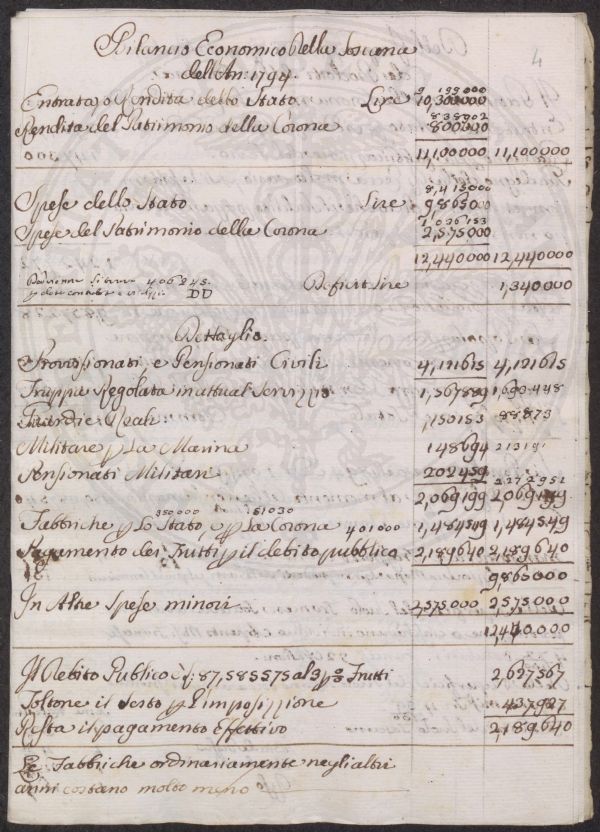 Bilancio Economico Della Toscana
dell'An: 1794.
4
9 199000
Entrata, o Rendita dello Stato Lire 10,300000
838802
Rendita del Patrimonio della Corona 800000
11,100000 11,100000
8,413000
Spese dello Stato Lire 9865000
1026153
Spese del Patrimonio della Corona 2,575000
12,440000 12,440000
406245 Deficit Lire 1,340000
Dettaglio.
Provisionati, e Pensionati Civili 4,191615 4,191615
Truppa Regolata in attual Servizzio 1,567889 1,690448
Guardie Reali 150153 88873
Militare p La Marina 148694
Pensionati Militari 202459
2272951
2,069199 2,069199
350000 51030
Fabbriche p Lo Stato, e p La Corona 401000 1,484549 1,484549
Pagamento dei Frutti p il debito pubblico 2,189640 2,189640
9,865000
In Altre Spese minori 2,575000 2,575000
12,440000
Il Debito Publico è f: 87,585575 al 3 p% Frutti 2,627567
Toltone il Sesto p L'imposizzione 437927
Resta il pagamento Effettivo 2,189640
Le Fabbriche ordinariamente negli altri
anni costano molto meno